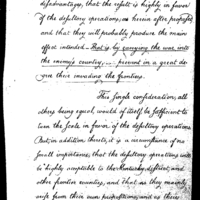 disadvantages, that the result is highly in favor
of the desultory operations, as herein after proposed
and that they will probably produce the main
effect intended — That is, by carrying the war into
the enemy's country, prevent in a great de-
gree their invading the frontiers.
This single consideration, all
others being equal, would of itself be sufficient to
turn the scale in favor of the desultory operations
But in addition thereto, it is a circumstance of no
small importance, that the desultory operations will
be highly acceptable to the Kentucky, district, and
other frontier counties, and that as they mainly
arise from their own propositions, and as their